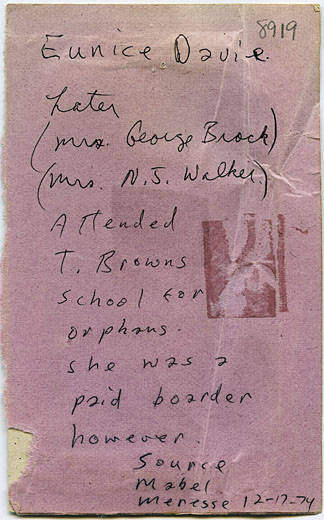 8919
Eunice Davie.
Later
(Mrs. George Brock)
(Mrs. N.J. Walker.)
Attended
T. Browns
School for
orphans.
she was a
paid boarder
however.
Source
Mabel
Meresse 12-17-74